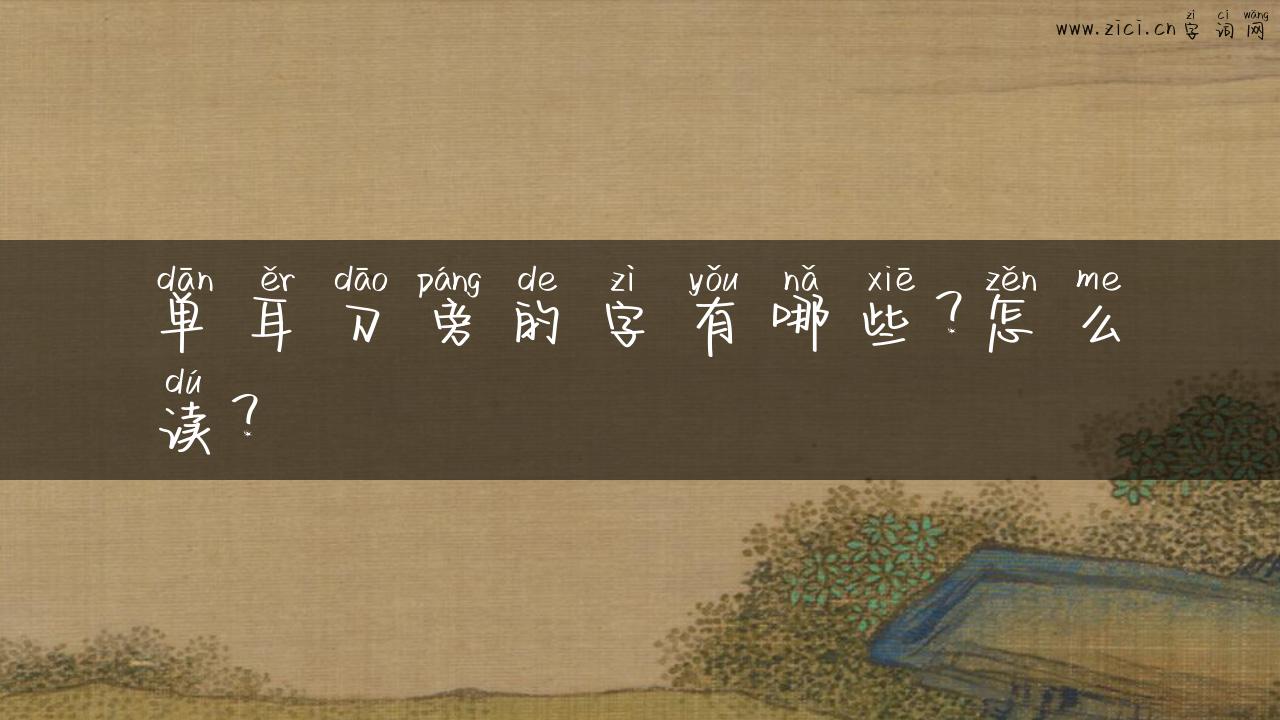 zì cí wǎng
www.zici.cn字词网
dān ěr dāo páng de zì yǒu nǎ xiē zěn me
单耳刀旁的字有哪些?怎么
dú
读?